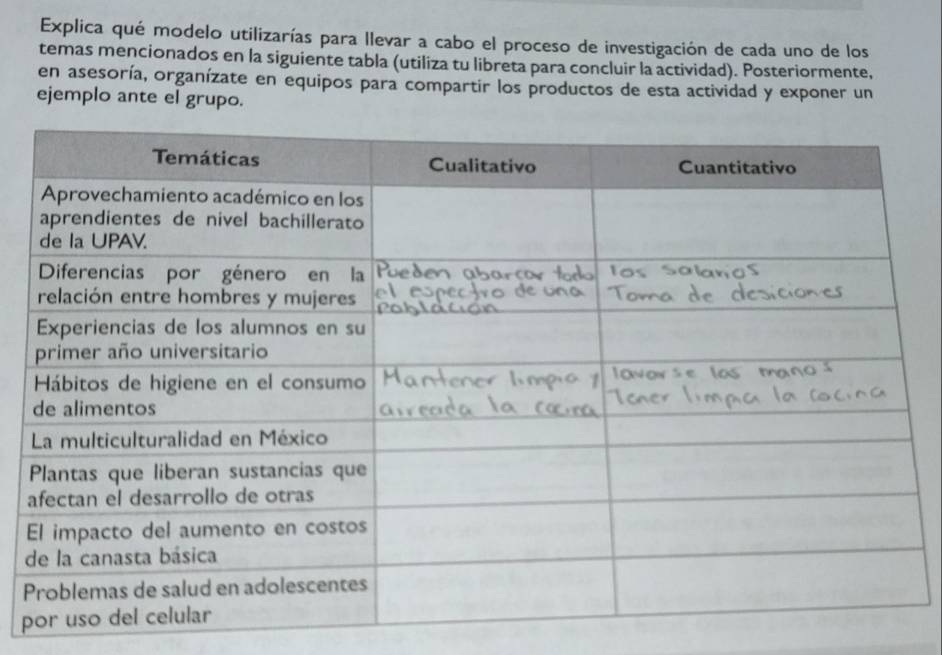 Explica qué modelo utilizarías para llevar a cabo el proceso de investigación de cada uno de los
temas mencionados en la siguiente tabla (utiliza tu libreta para concluir la actividad). Posteriormente,
en asesoría, organízate en equipos para compartir los productos de esta actividad y exponer un
ejemplo ante el grupo.
Temáticas Cualitativo Cuantitativo
Aprovechamiento académico en los
aprendientes de nivel bachillerato
de la UPAV.
Diferencias por género en la Pueden abarcar todo los salarios
relación entre hombres y mujeres el espectro de una Toma de desiciones
población
Experiencias de los alumnos en su
primer año universitario
Hábitos de higiene en el consumo Mantener limpia y lavarse las manos
de alimentos aireada la cocina Tener limpia la cocina
La multiculturalidad en México
Plantas que liberan sustancias que
afectan el desarrollo de otras
El impacto del aumento en costos
de la canasta básica
Problemas de salud en adolescentes
por uso del celular